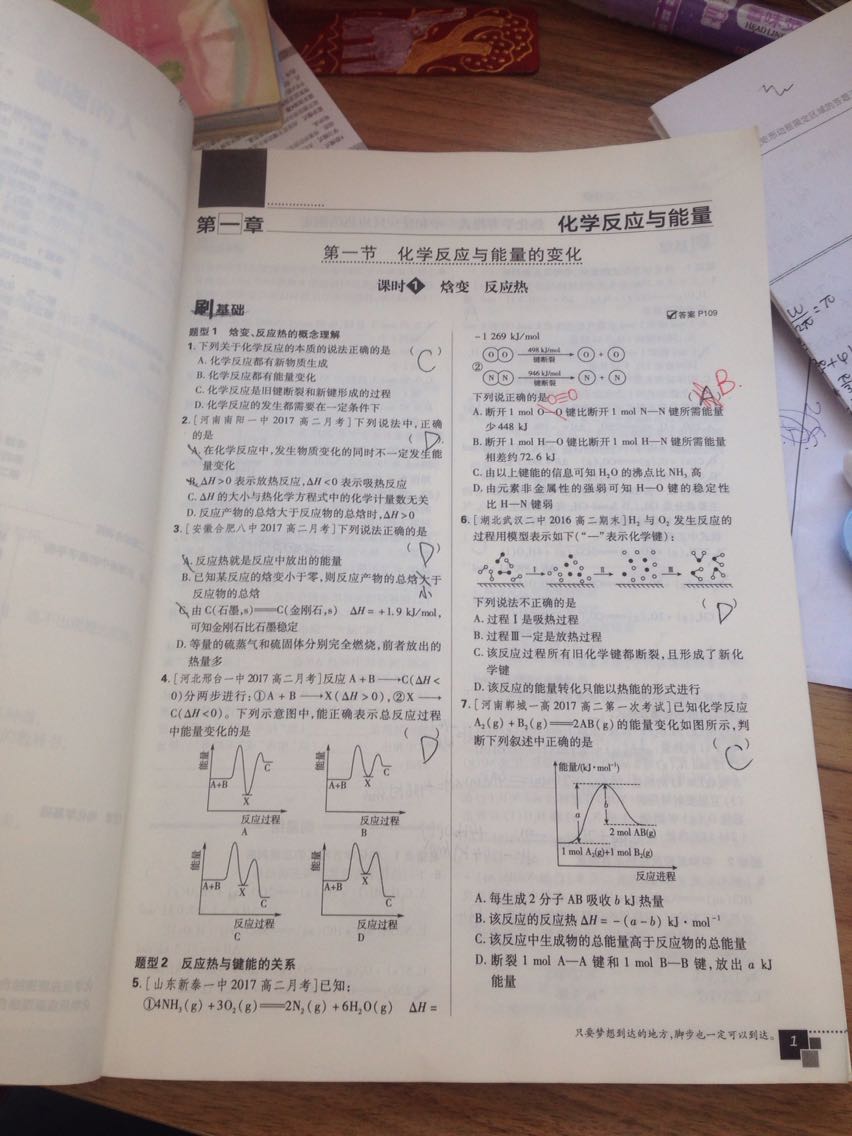 第一章
化学反应与能量
第一节 化学反应与能量的变化
课时1 焓变 反应热
刷基础
答案 P109
题型1 焓变、反应热的概念理解
1.下列关于化学反应的本质的说法正确的是 ( C )
A.化学反应都有新物质生成
B.化学反应都有能量变化
C.化学反应是旧键断裂和新键形成的过程
D.化学反应的发生都需要在一定条件下
2.[河南南阳一中2017高二月考]下列说法中,正确
的是 ( D )
A.在化学反应中,发生物质变化的同时不一定发生能
量变化
B.ΔH>0表示放热反应,ΔH<0表示吸热反应
C.ΔH的大小与热化学方程式中的化学计量数无关
D.反应产物的总焓大于反应物的总焓时,ΔH>0
3.[安徽合肥八中2017高二月考]下列说法正确的是
( D )
A.反应热就是反应中放出的能量
B.已知某反应的焓变小于零,则反应产物的总焓大于
小
反应物的总焓
C.由C(石墨,s)══C(金刚石,s) ΔH=+1.9 kJ/mol,
可知金刚石比石墨稳定
D.等量的硫蒸气和硫固体分别完全燃烧,前者放出的
热量多
4.[河北邢台一中2017高二月考]反应A+B→C(ΔH<
0)分两步进行:①A+B→X(ΔH>0),②X→
C(ΔH<0)。下列示意图中,能正确表示总反应过程
中能量变化的是 ( D )
能量 A+B X C 反应过程 A
能量 A+B X C 反应过程 B
能量 A+B X C 反应过程 C
能量 A+B X C 反应过程 D
题型2 反应热与键能的关系
5.[山东新泰一中2017高二月考]已知:
①4NH₃(g)+3O₂(g)══2N₂(g)+6H₂O(g) ΔH=
-1 269 kJ/mol
② O O 498 kJ/mol 键断裂 O + O
N N 946 kJ/mol 键断裂 N + N
下列说正确的是 ( A ) B.
O=O
A.断开1 mol O—O键比断开1 mol N—N键所需能量
少448 kJ
B.断开1 mol H—O键比断开1 mol H—N键所需能量
相差约72.6 kJ
C.由以上键能的信息可知H₂O的沸点比NH₃高
D.由元素非金属性的强弱可知H—O键的稳定性
比H—N键弱
6.[湖北武汉二中2016高二期末]H₂与O₂发生反应的
过程用模型表示如下(“—”表示化学键):
Ⅰ Ⅱ Ⅲ
下列说法不正确的是 ( D )
A.过程Ⅰ是吸热过程
B.过程Ⅲ一定是放热过程
C.该反应过程所有旧化学键都断裂,且形成了新化
学键
D.该反应的能量转化只能以热能的形式进行
7.[河南郸城一高2017高二第一次考试]已知化学反应
A₂(g)+B₂(g)══2AB(g)的能量变化如图所示,判
断下列叙述中正确的是 ( C )
能量/(kJ·mol⁻¹)
a b
2 mol AB(g)
1 mol A₂(g)+1 mol B₂(g)
反应进程
A.每生成2分子AB吸收b kJ热量
B.该反应的反应热ΔH=-(a-b) kJ·mol⁻¹
C.该反应中生成物的总能量高于反应物的总能量
D.断裂1 mol A—A键和1 mol B—B键,放出a kJ
能量
只要梦想到达的地方,脚步也一定可以到达。
1